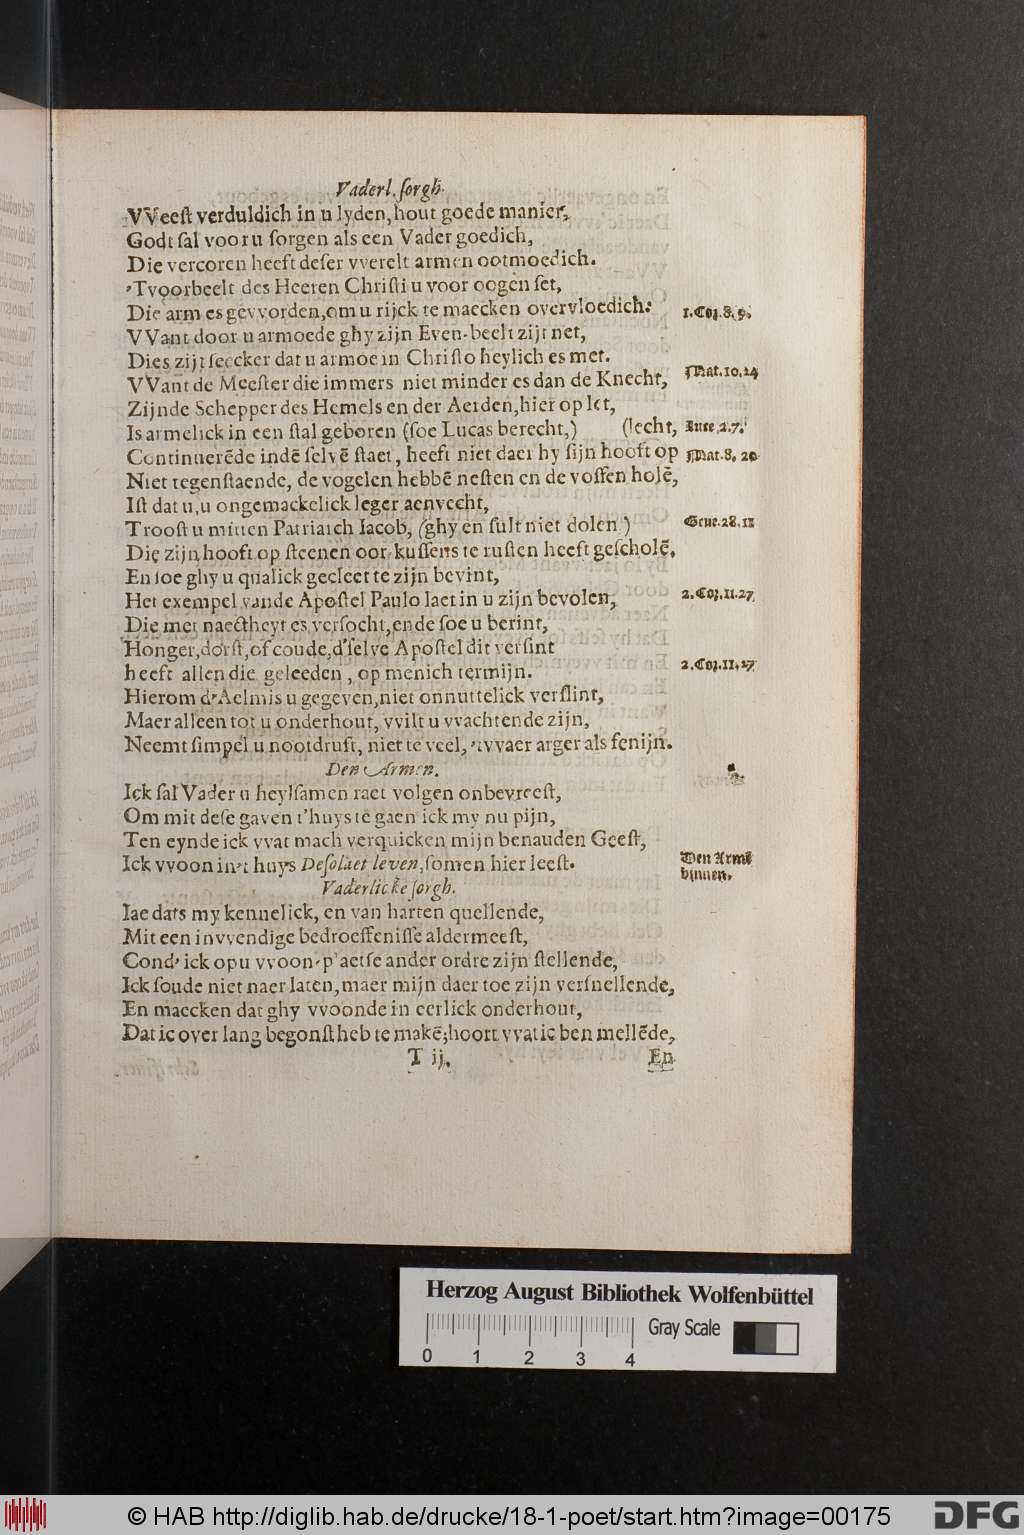 Vaderl. ſorgh.
VVeeſt verduldich in u lyden, hout goede manier,
Godt ſal voor u ſorgen als een Vader goedich,
Die vercoren heeft deſer vverelt armen ootmoedich.
'Tvoorbeelt des Heeren Chriſti u voor oogen ſet,
Die arm es gevvorden, om u rijck te maecken overvloedich: 1. Cor. 8. 9.
VVant door u armoede ghy zijn Even-beelt zijt net,
Dies zijt ſeecker dat u armoe in Chriſto heylich es met.
VVant de Meeſter die immers niet minder es dan de Knecht, Mat. 10. 24
Zijnde Schepper des Hemels en der Aerden, hier op let,
Is armelick in een ſtal geboren (ſoe Lucas berecht,) (lecht, Luce 2. 7.
Continuerēde indē ſelvē ſtaet, heeft niet daer hy ſijn hooft op Mat. 8. 20
Niet tegenſtaende, de vogelen hebbē neſten en de voſſen holē,
Iſt dat u, u ongemackelick leger aenvecht,
Trooſt u mitten Patriarch Iacob, (ghy en ſult niet dolen) Gene. 28. 11
Die zijn hooft op ſteenen oor-kuſſens te ruſten heeft geſcholē.
En ſoe ghy u qualick gecleet te zijn bevint,
Het exempel vande Apoſtel Paulo laet in u zijn bevolen, 2. Cor. 11. 27
Die met naectheyt es verſocht, ende ſoe u berint,
Honger, dorſt, of coude, d'ſelve Apoſtel dit verſint
heeft allen die geleeden, op menich termijn. 2. Cor. 11. 27
Hierom d'Aelmis u gegeven, niet onnuttelick verſlint,
Maer alleen tot u onderhout, vvilt u vvachtende zijn,
Neemt ſimpel u nootdruft, niet te veel, 'tvvaer arger als fenijn.
Den Armen.
Ick ſal Vader u heylſamen raet volgen onbevreeſt,
Om mit deſe gaven t'huys te gaen ick my nu pijn,
Ten eynde ick vvat mach verquicken mijn benauden Geeſt,
Ick vvoon in't huys Deſolaet leven, ſomen hier leeſt. Den Armē
binnen.
Vaderlicke ſorgh.
Iae dats my kennelick, en van harten quellende,
Mit een invvendige bedroeffeniſſe aldermeeſt,
Cond' ick op u vvoon-plaetſe ander ordre zijn ſtellende,
Ick ſoude niet naer laten, maer mijn daer toe zijn verſnellende,
En maecken dat ghy vvoonde in eerlick onderhout,
Dat ic over lang begonſt heb te makē; hoort vvat ic ben mellēde,
T ij. En
Herzog August Bibliothek Wolfenbüttel
Gray Scale
0 1 2 3 4
© HAB http://diglib.hab.de/drucke/18-1-poet/start.htm?image=00175
DFG